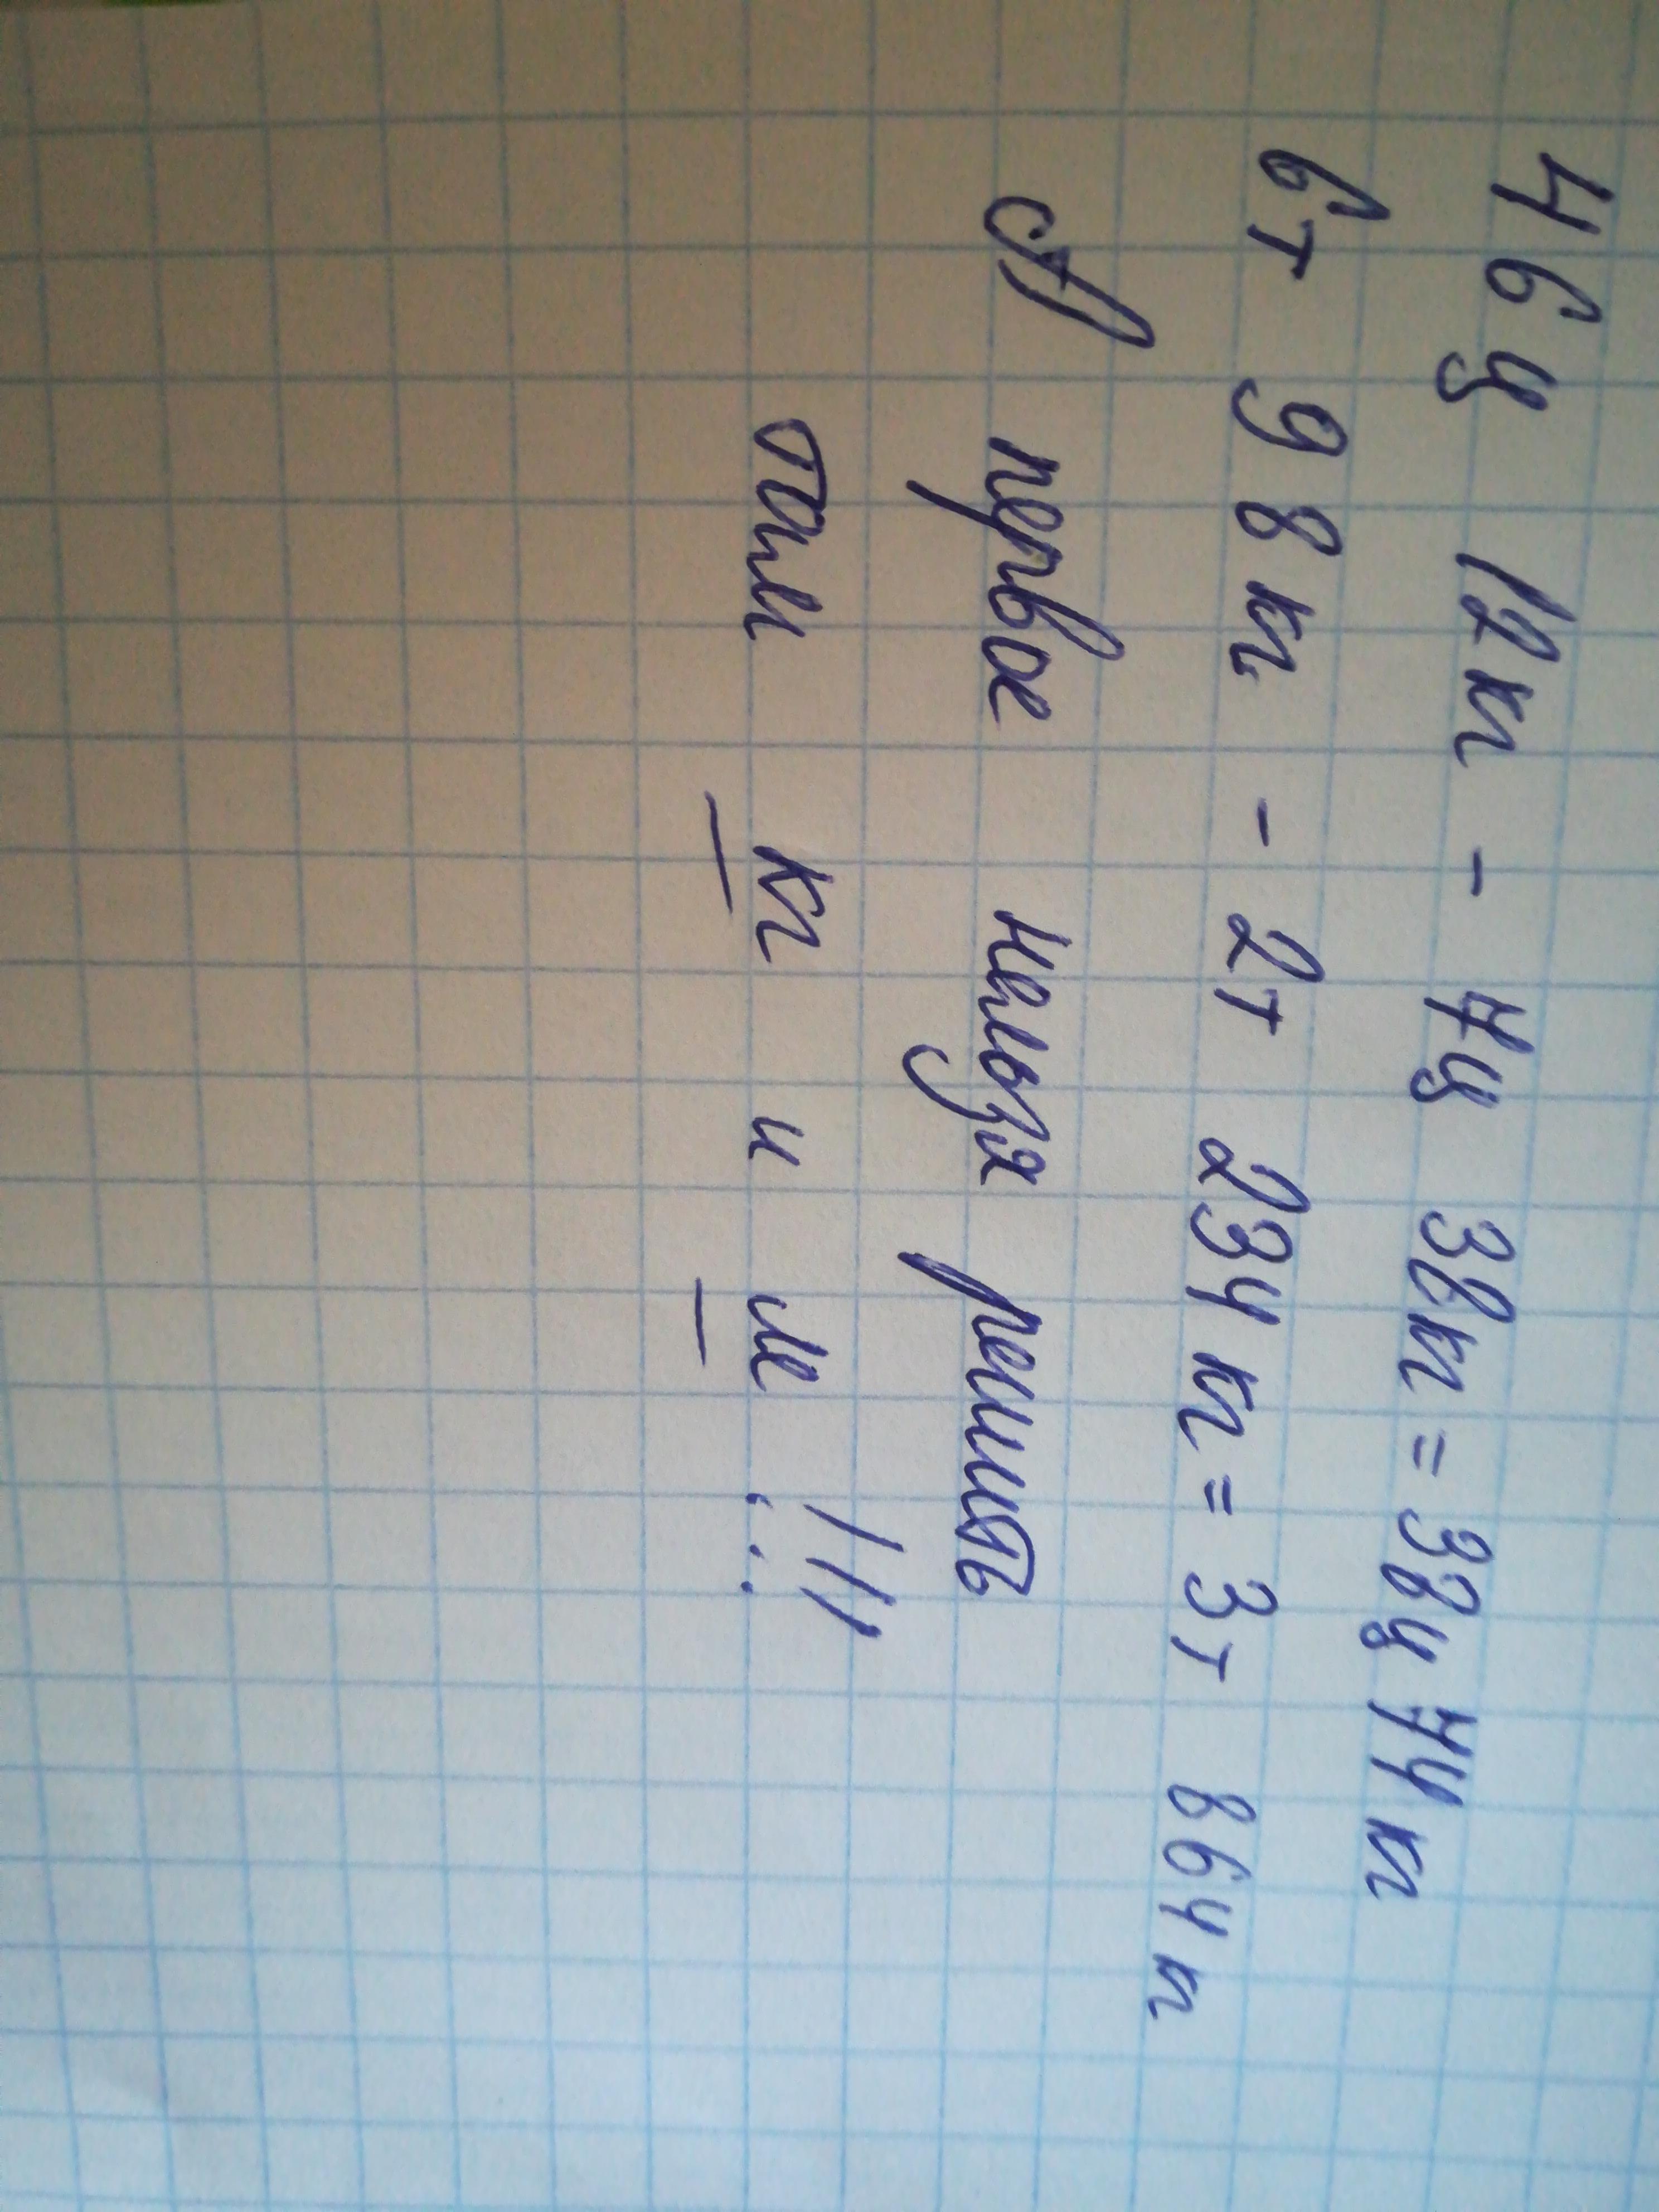 46ц 12кг - 7ц 38кг = 38ц 74кг
6т 98кг - 2т 234кг = 3т 864кг
А первое нельзя решить
там кг и м !!!